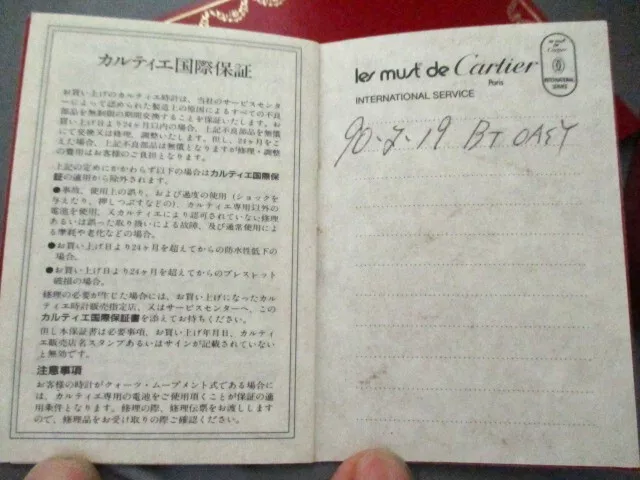 カルティエ国際保証
お買い上げのカルティエ時計は、当社のサービスセンタ
ーによって認められた製造上の原因によるすべての不良
部品を無制限の期間交換することを保証いたします。お
買い上げ日より24ヶ月以内の場合、上記不良部品を無償
にて交換又は修理、調整いたします。但し、24ヶ月をこ
えた場合、上記不良部品は無償となりますが修理・調整
の費用はお客様のご負担となります。
上記の定めにかかわらず以下の場合はカルティエ国際保
証の適用から除外されます。
●事故、使用上の誤り、および過度の使用(ショックを
与えたり、押しつぶすなどの)、カルティエ専用以外の
電池を使用、又カルティエにより認可されていない修理
あるいは誤った取り扱いによる故障、及び通常使用によ
る摩耗や老化などの場合。
●お買い上げ日より24ヶ月を超えてからの防水性低下の
場合。
●お買い上げ日より24ヶ月を超えてからのブレスレット
破損の場合。
修理の必要が生じた場合には、お買い上げになったカル
ティエ時計販売指定店、又はサービスセンターへ、この
カルティエ国際保証書を添えてお持ちください。
但し本保証書は必要事項、お買い上げ年月日、カルティ
エ販売店名スタンプあるいはサインが記載されていない
と無効です。
注意事項
お客様の時計がクォーツ・ムーブメント式である場合に
は、カルティエ専用の電池をご使用頂くことが保証の適
用条件となります。修理の際、修理伝票をお渡しします
ので、修理品をお受け取りの際ご確認ください。
les must de Cartier
Paris
INTERNATIONAL SERVICE
les must de
Cartier
INTERNATIONAL
SERVICE
90-2-19 BT